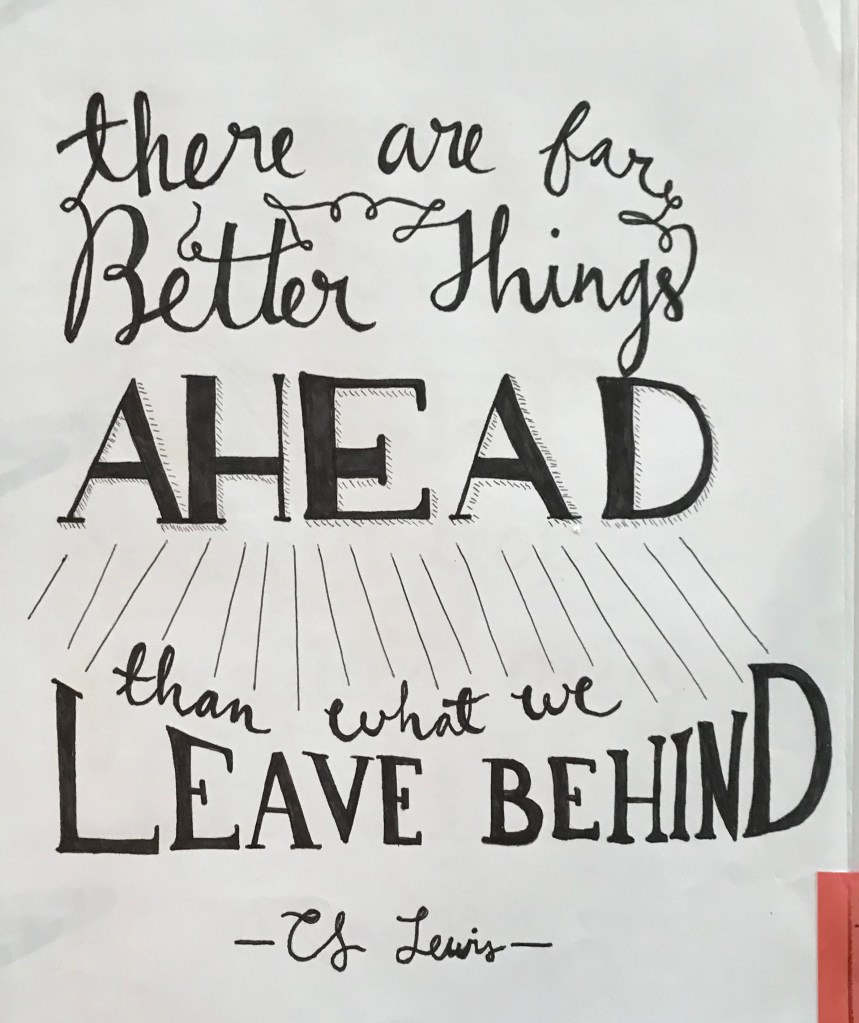 there are far
Better Things
AHEAD
than what we
LEAVE BEHIND
- CS Lewis -